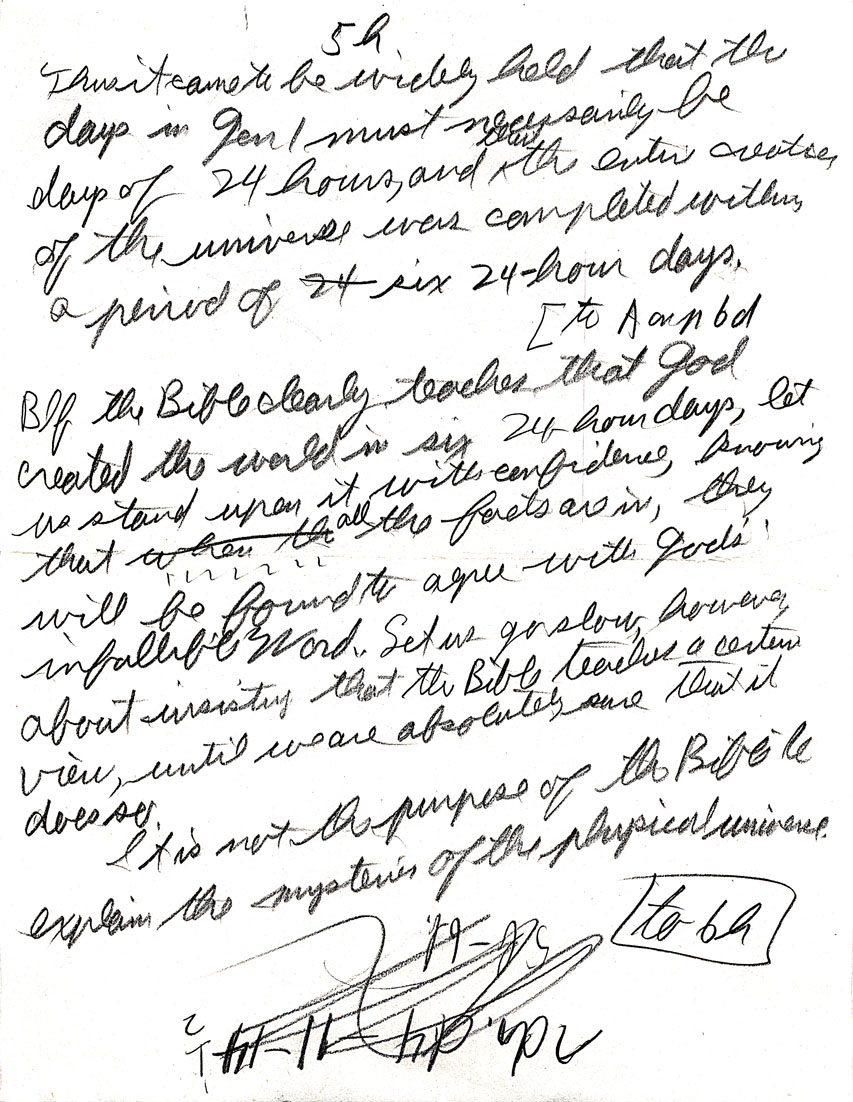 5h
Thus it came to be widely held that the
days in Gen 1 must necessarily be
days of 24 hours, and that the entire creation
of the universe was completed within
a period of 24 six 24-hour days.
[to A on p 6d
B If the Bible clearly teaches that God
created the world in six 24-hour days, let
us stand upon it with confidence, knowing
that when th all the facts are in, they
will be found to agree with God's
infallible Word. Let us go slow, however,
about insisting that the Bible teaches a certain
view, until we are absolutely sure that it
does so.
It is not the purpose of the Bible to
explain the mysteries of the physical universe.
[to 6h]